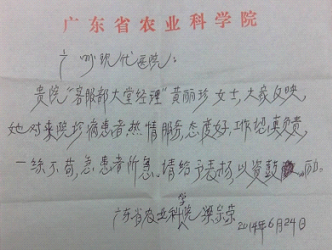 广东省农业科学院
广州现代医院：
贵院“客服部大堂经理”黄丽珍女士，大家反映，
她对来院珍病患者热情服务，态度好，工作认真负责，
一丝不苟，急患者所急。请给予表扬，以资鼓励。
广东省农业科学院 梁
2014年6月24日